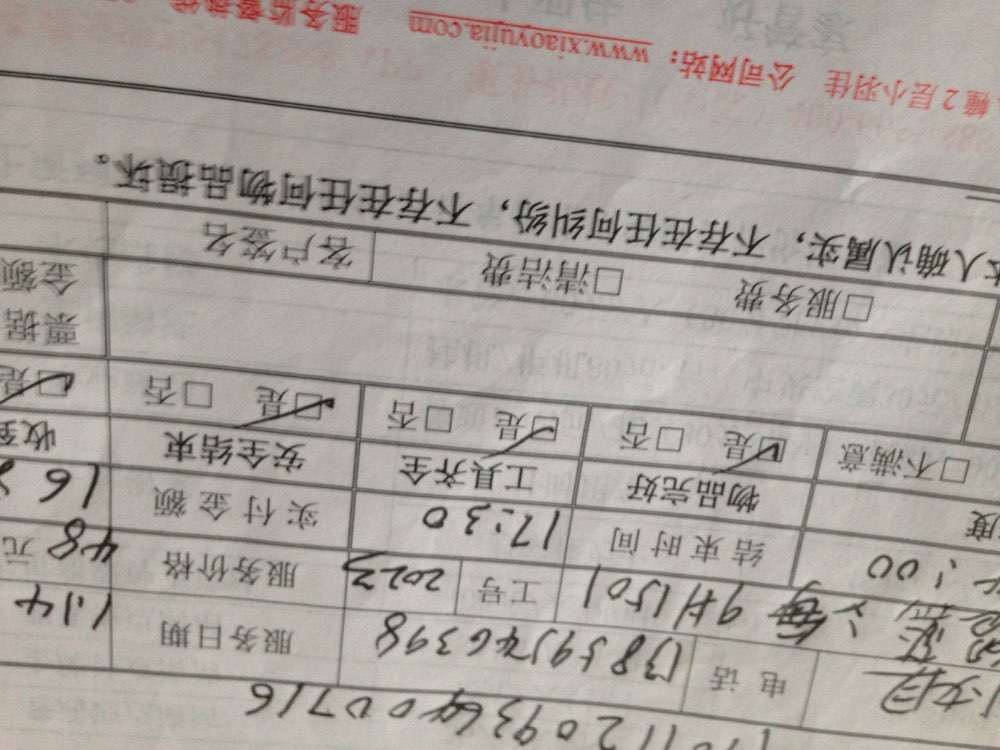 电话 13859746398 服务日期 1.14
9#1501 工号 2023 服务价格 48元
结束时间 17:30 实付金额
物品完好 工具齐全 安全结束
□不满意 ☑是 □否 ☑是 □否 ☑是 □否 ☑是
票据
金额
□服务费 □清洁费 客户签名
人确认属实，不存在任何纠纷，不存在任何物品损坏。
幢2层小羽佳 公司网站：www.xiaoyujia.com 服务监督热线